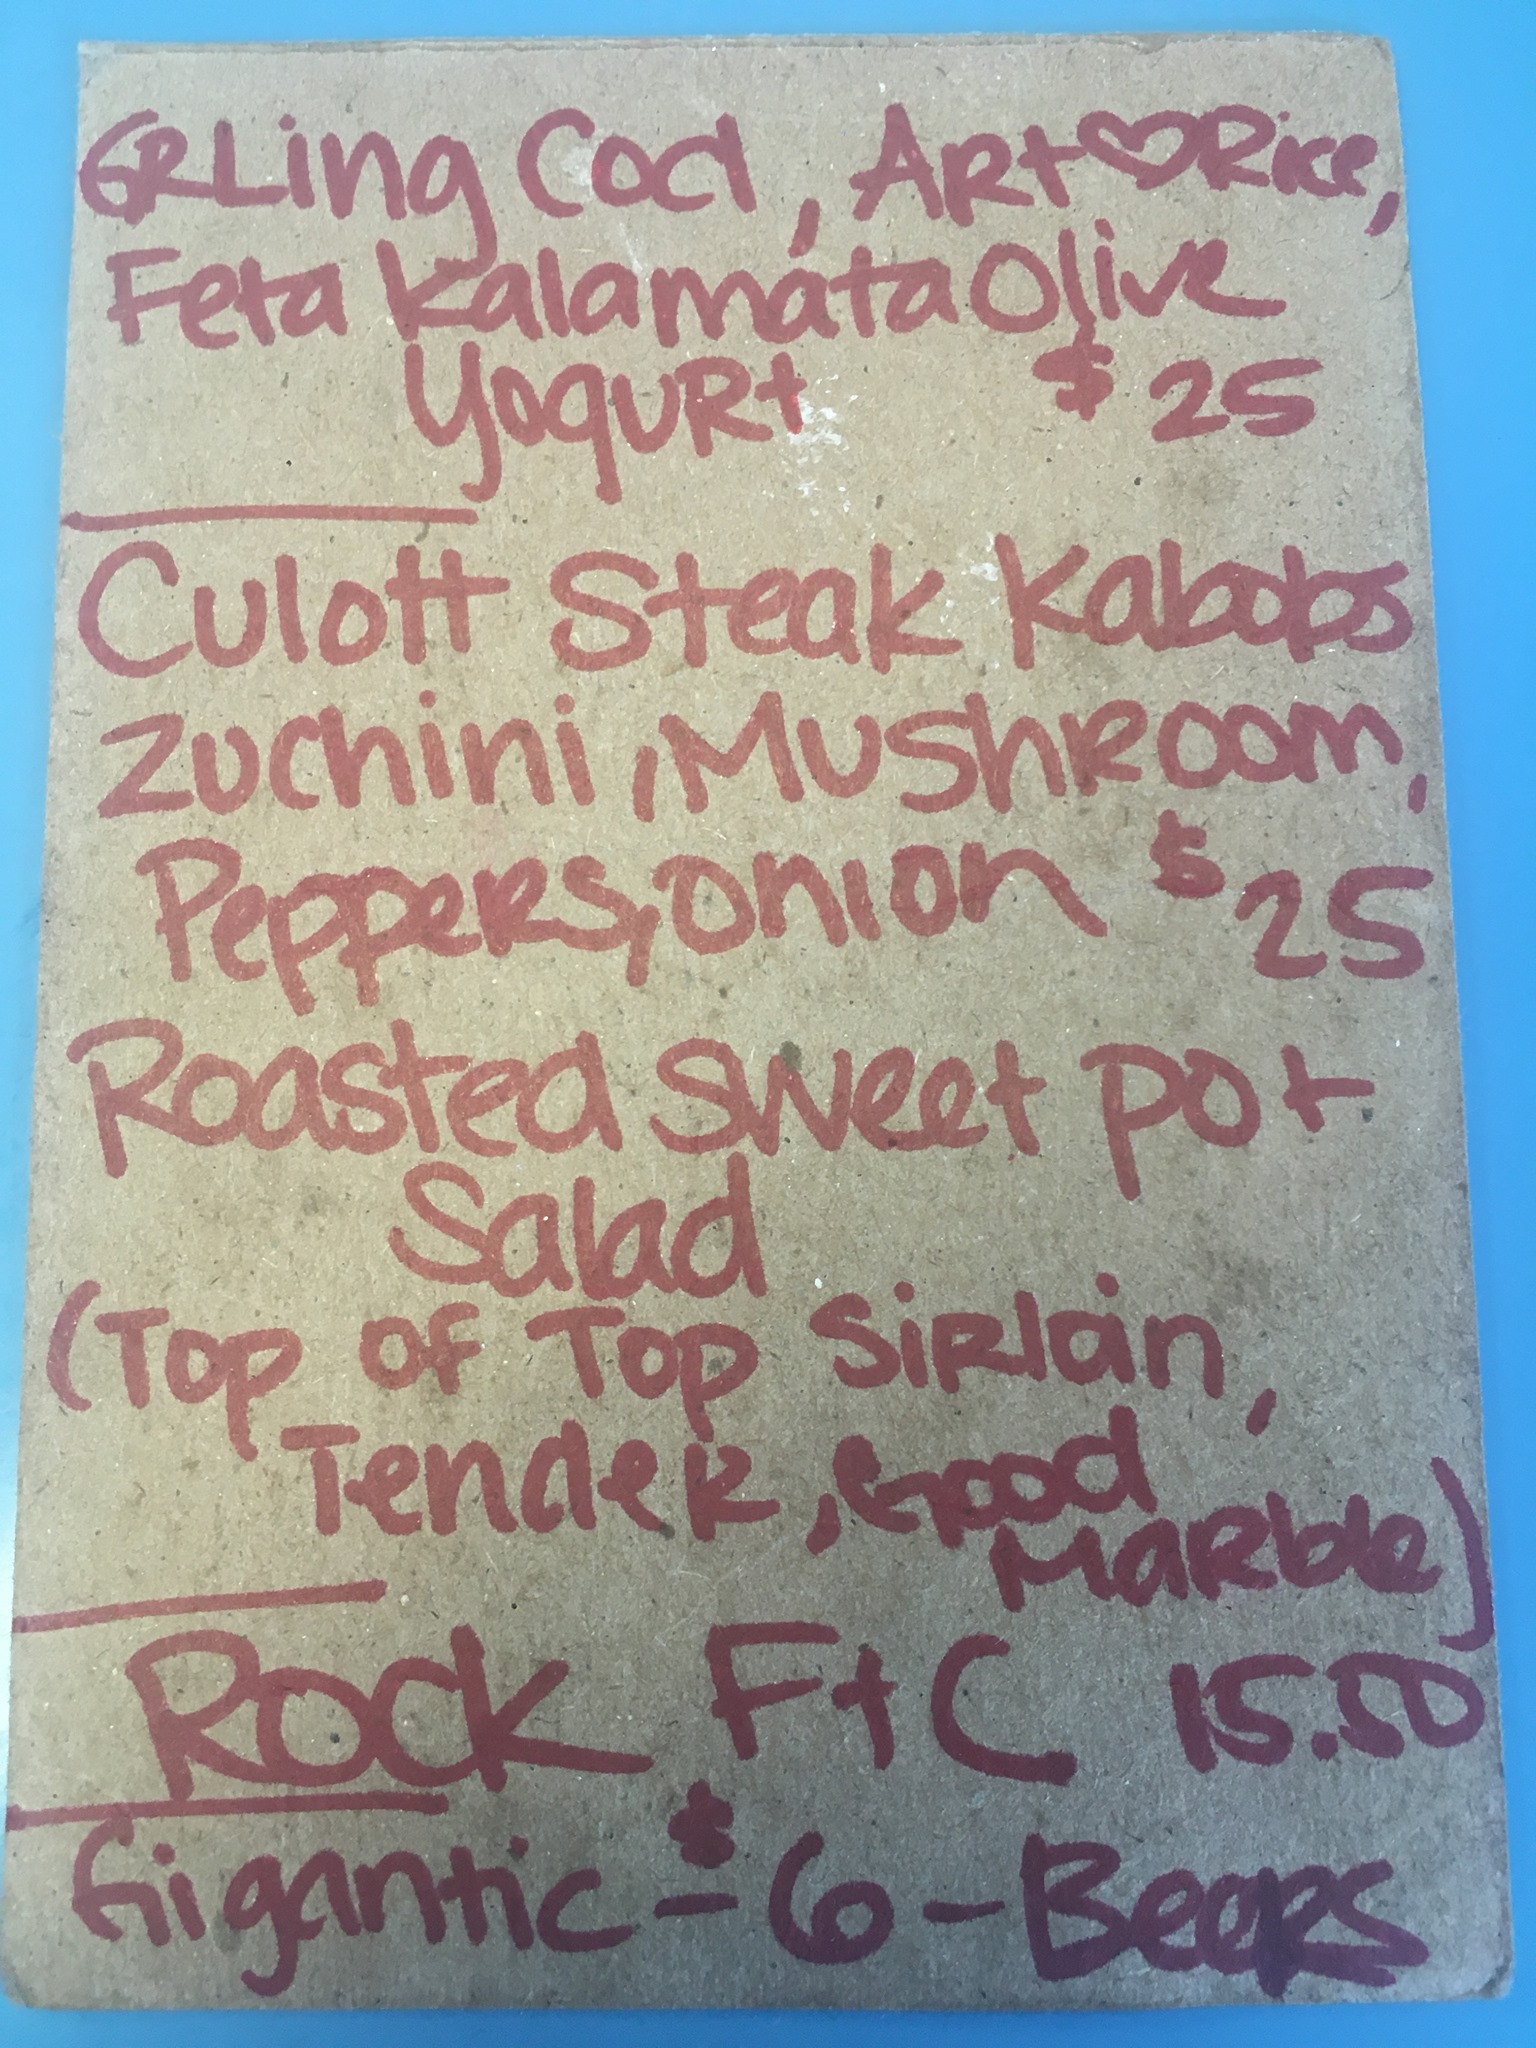 GR Ling Cod, Art♡Rice,
Feta Kalamata Olive
Yogurt $25
Culott Steak Kabobs
Zuchini, Mushroom,
Peppers, Onion $25
Roasted Sweet pot
Salad
(Top of Top Sirloin,
Tender, Good
Marble)
Rock F+C 15.50
Gigantic - $6 - Beers